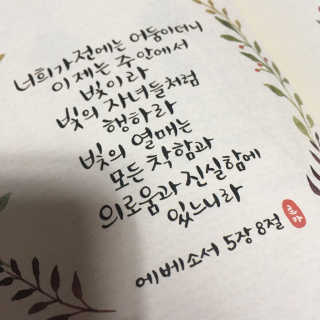 너희가 전에는 어둠이더니
이제는 주 안에서
빛이라
빛의 자녀들처럼
행하라
빛의 열매는
모든 착함과
의로움과 진실함에
있느니라
에베소서 5장 8절